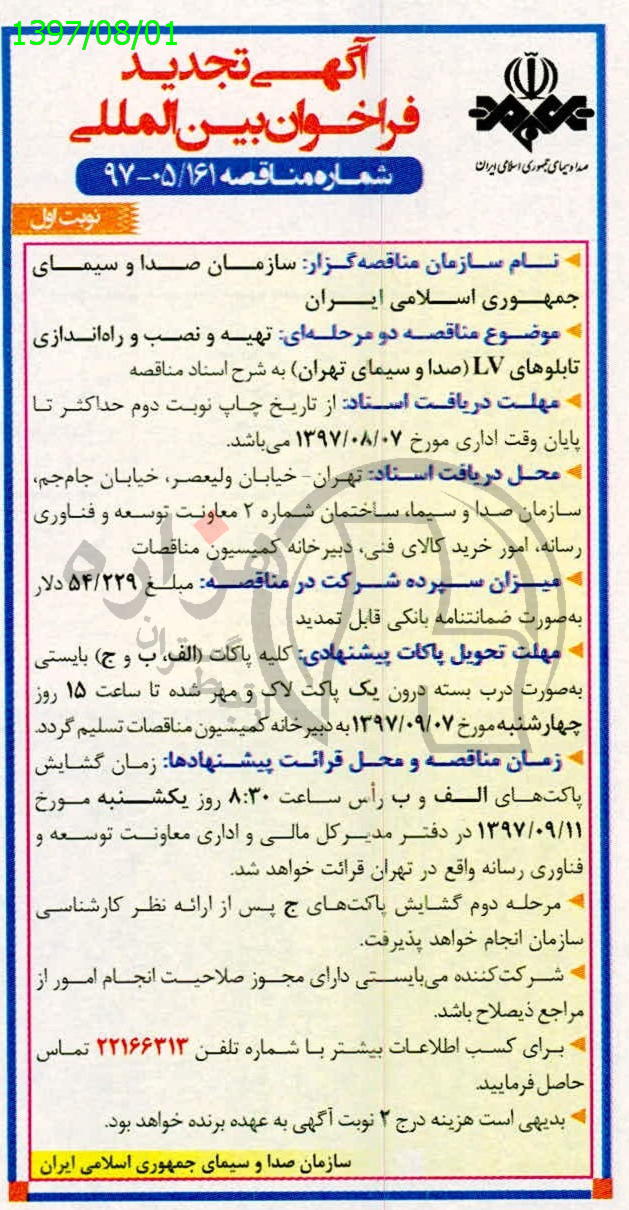 1397/08/01
آگهی تجدید
فراخوان بین‌المللی
صدا و سیمای جمهوری اسلامی ایران
شماره مناقصه ۰۵/۱۶۱-۹۷
نوبت اول
نام سازمان مناقصه‌گزار: سازمان صدا و سیمای
جمهوری اسلامی ایران
موضوع مناقصه دو مرحله‌ای: تهیه و نصب و راه‌اندازی
تابلوهای LV (صدا و سیمای تهران) به شرح اسناد مناقصه
مهلت دریافت اسناد: از تاریخ چاپ نوبت دوم حداکثر تا
پایان وقت اداری مورخ ۱۳۹۷/۰۸/۰۷ می‌باشد.
محل دریافت اسناد: تهران- خیابان ولیعصر، خیابان جام‌جم،
سازمان صدا و سیما، ساختمان شماره ۲ معاونت توسعه و فناوری
رسانه، امور خرید کالای فنی، دبیرخانه کمیسیون مناقصات
میزان سپرده شرکت در مناقصه: مبلغ ۵۴/۲۲۹ دلار
به‌صورت ضمانتنامه بانکی قابل تمدید
مهلت تحویل پاکات پیشنهادی: کلیه پاکات (الف، ب و ج) بایستی
به‌صورت درب بسته درون یک پاکت لاک و مهر شده تا ساعت ۱۵ روز
چهارشنبه مورخ ۱۳۹۷/۰۹/۰۷ به دبیرخانه کمیسیون مناقصات تسلیم گردد.
زمان مناقصه و محل قرائت پیشنهادها: زمان گشایش
پاکت‌های الف و ب رأس ساعت ۸:۳۰ روز یکشنبه مورخ
۱۳۹۷/۰۹/۱۱ در دفتر مدیرکل مالی و اداری معاونت توسعه و
فناوری رسانه واقع در تهران قرائت خواهد شد.
مرحله دوم گشایش پاکت‌های ج پس از ارائه نظر کارشناسی
سازمان انجام خواهد پذیرفت.
شرکت‌کننده می‌بایستی دارای مجوز صلاحیت انجام امور از
مراجع ذیصلاح باشد.
برای کسب اطلاعات بیشتر با شماره تلفن ۲۲۱۶۶۳۱۳ تماس
حاصل فرمایید.
بدیهی است هزینه درج ۲ نوبت آگهی به عهده برنده خواهد بود.
سازمان صدا و سیمای جمهوری اسلامی ایران
هزاره